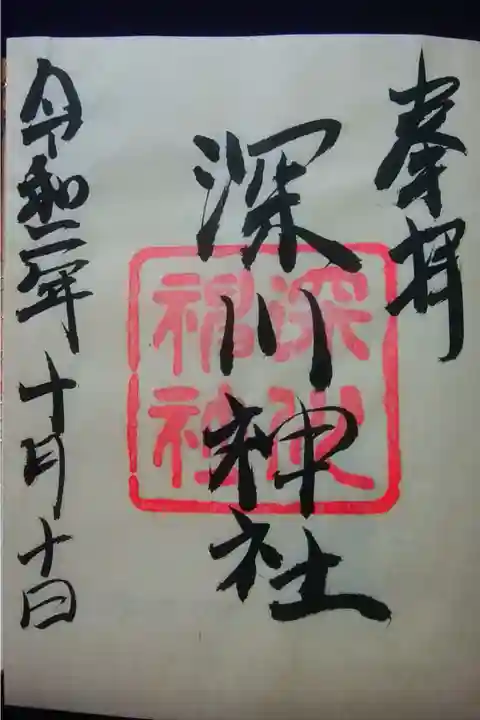 奉拝
深川神社
深川神社
令和二年十月十日